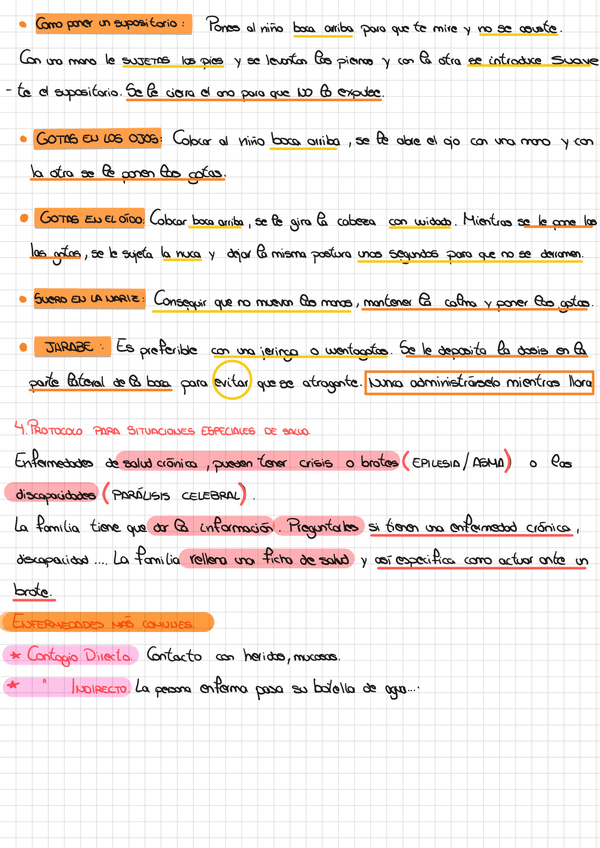 • Como poner un supositorio: Pones al niño boca arriba para que te mire y no se asuste.
Con una mano le SUJETAS los pies y se levantan las piernas y con la otra se introduce suave
-te el supositorio. Se le cierra el ano para que NO lo expulse.
• GOTAS EN LOS OJOS: Colocar al niño boca arriba, se le abre el ojo con una mano y con
la otra se le ponen las gotas.
• GOTAS EN EL OÍDO: Colocar boca arriba, se le gira la cabeza con cuidado. Mientras se le pone las
las gotas, se le sujeta la nuca y dejar la misma postura unos segundos para que no se derramen.
• SUERO EN LA NARIZ: Conseguir que no muevan las manos, mantener la calma y poner las gotas.
• JARABE: Es preferible con una jeringa o cuentagotas. Se le deposita la dosis en la
parte lateral de la boca para evitar que se atragante. Nunca administrárselo mientras llora
4. PROTOCOLO PARA SITUACIONES ESPECIALES DE SALUD
Enfermedades de salud crónica, pueden tener crisis o brotes (EPILESIA/ASMA) o las
discapacidades (PARÁLISIS CELEBRAL).
La familia tiene que dar la información. Preguntarles si tienen una enfermedad crónica,
discapacidad .... La familia rellena una ficha de salud y así especifica como actuar ante un
brote.
ENFERMEDADES MÁS COMUNES.
* Contagio Directo. Contacto con heridas, mucosas.
* " INDIRECTO. La persona enferma pasa su botella de agua...